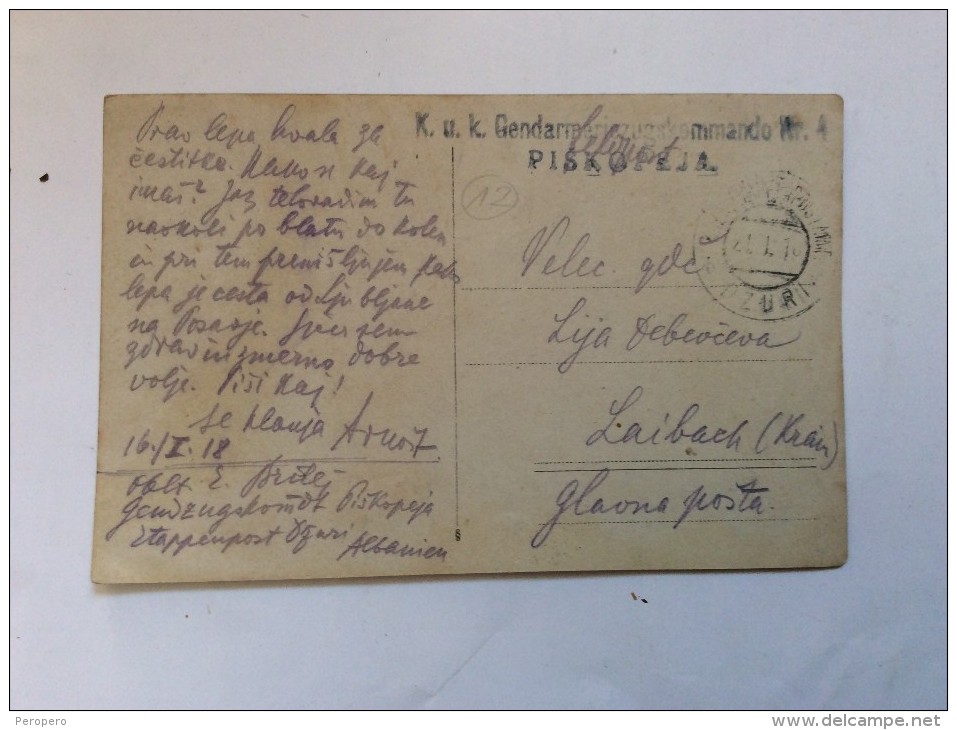 Prav lepa hvala za
čestitke. Kako se kaj
imaš? Jaz telovadim tu
naokoli po blatu do kolen
in pri tem premišljujem kako
lepa je cesta od Ljubljane
na Posavje. Sicer sem
zdrav in zmerno dobre
volje. Piši kaj!
Te klanja Arnošt
16./I. 18
Oblt. E. Brilej
Gendzugskomdt Piskopeja
Etappenpost Dzuri
Albanien
K. u. k. Gendarmeriezugskommando Nr. 4
PISKOPEJA.
12
DZURI
Velec. gdč.
Lija Debevčeva
Laibach (Krain)
Glavna pošta.
§
Peropero
www.delcampe.net